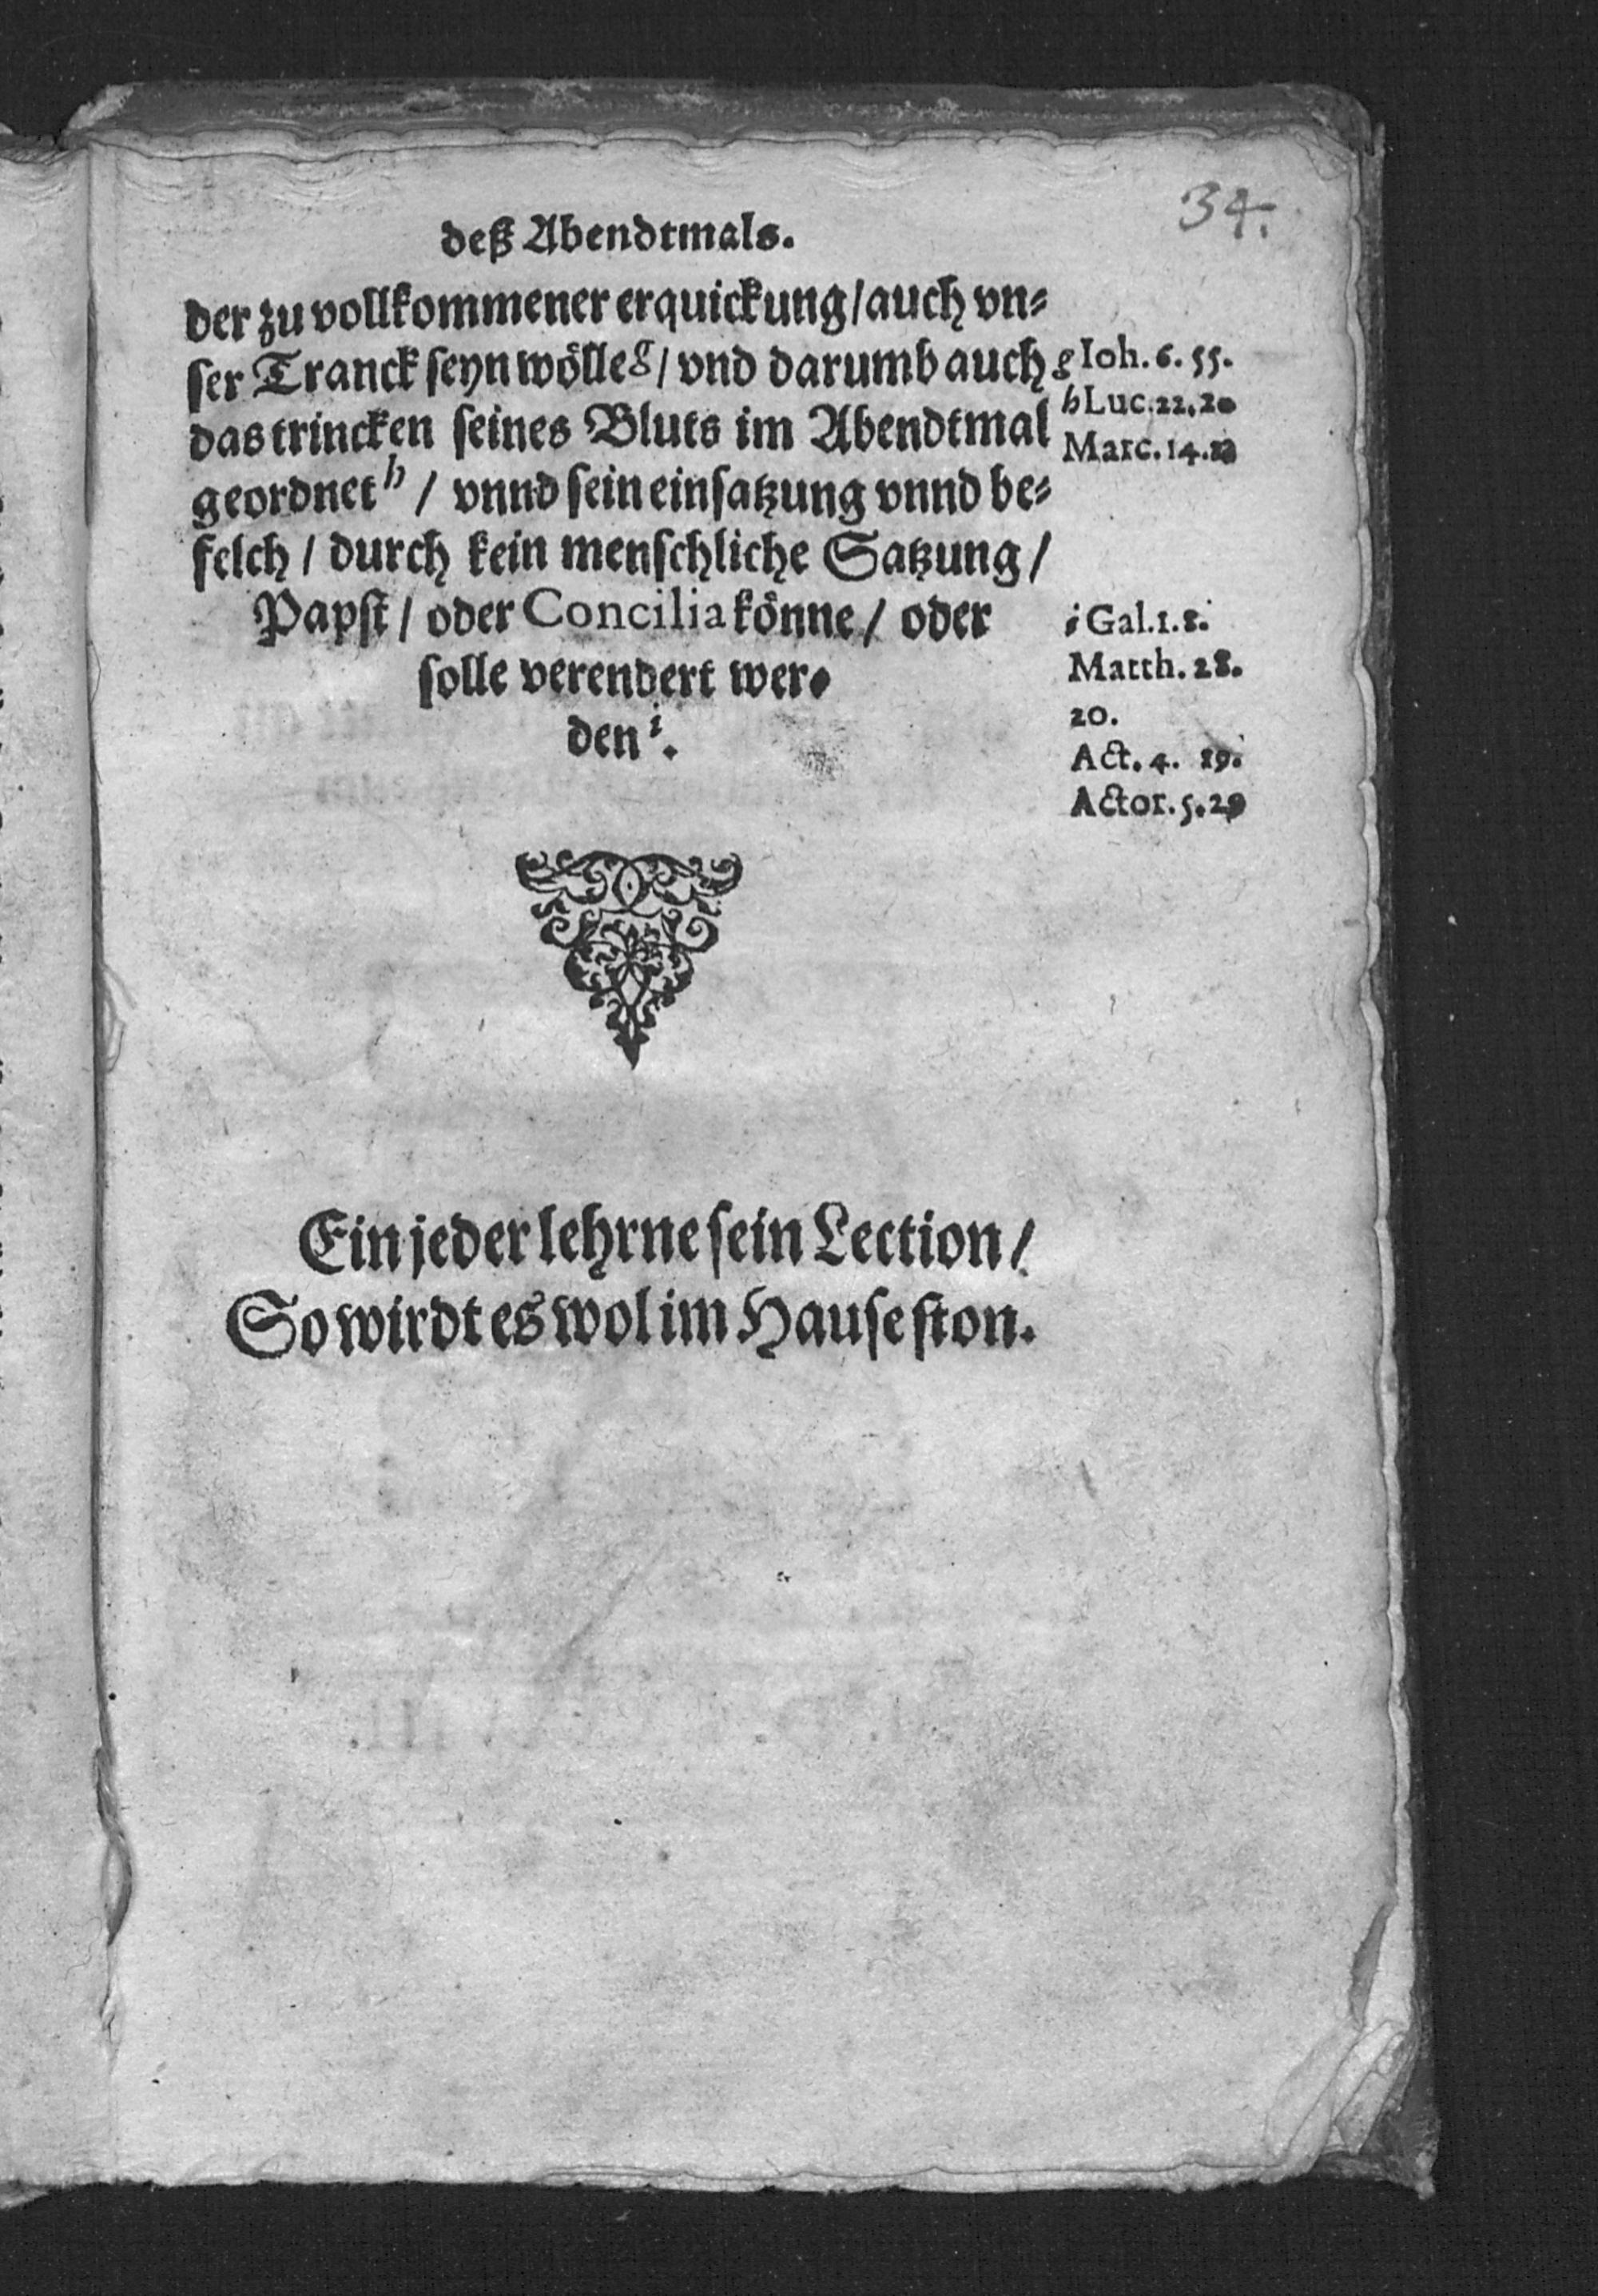 34.
deß Abendtmals.
der zu vollkommener erquickung / auch vn⸗
ser Tranck seyn wölle g / vnd darumb auch
das trincken seines Bluts im Abendtmal
geordnet h / vnnd sein einsatzung vnnd be⸗
felch / durch kein menschliche Satzung /
Papst / oder Concilia könne / oder
solle verendert wer⸗
den i.
g Ioh. 6. 55.
h Luc. 22. 20
Marc. 14.
i Gal. 1. 8.
Matth. 28.
20.
Act. 4. 19.
Actor. 5. 29
Ein jeder lehrne sein Lection /
So wirdt es wol im Hause ston.